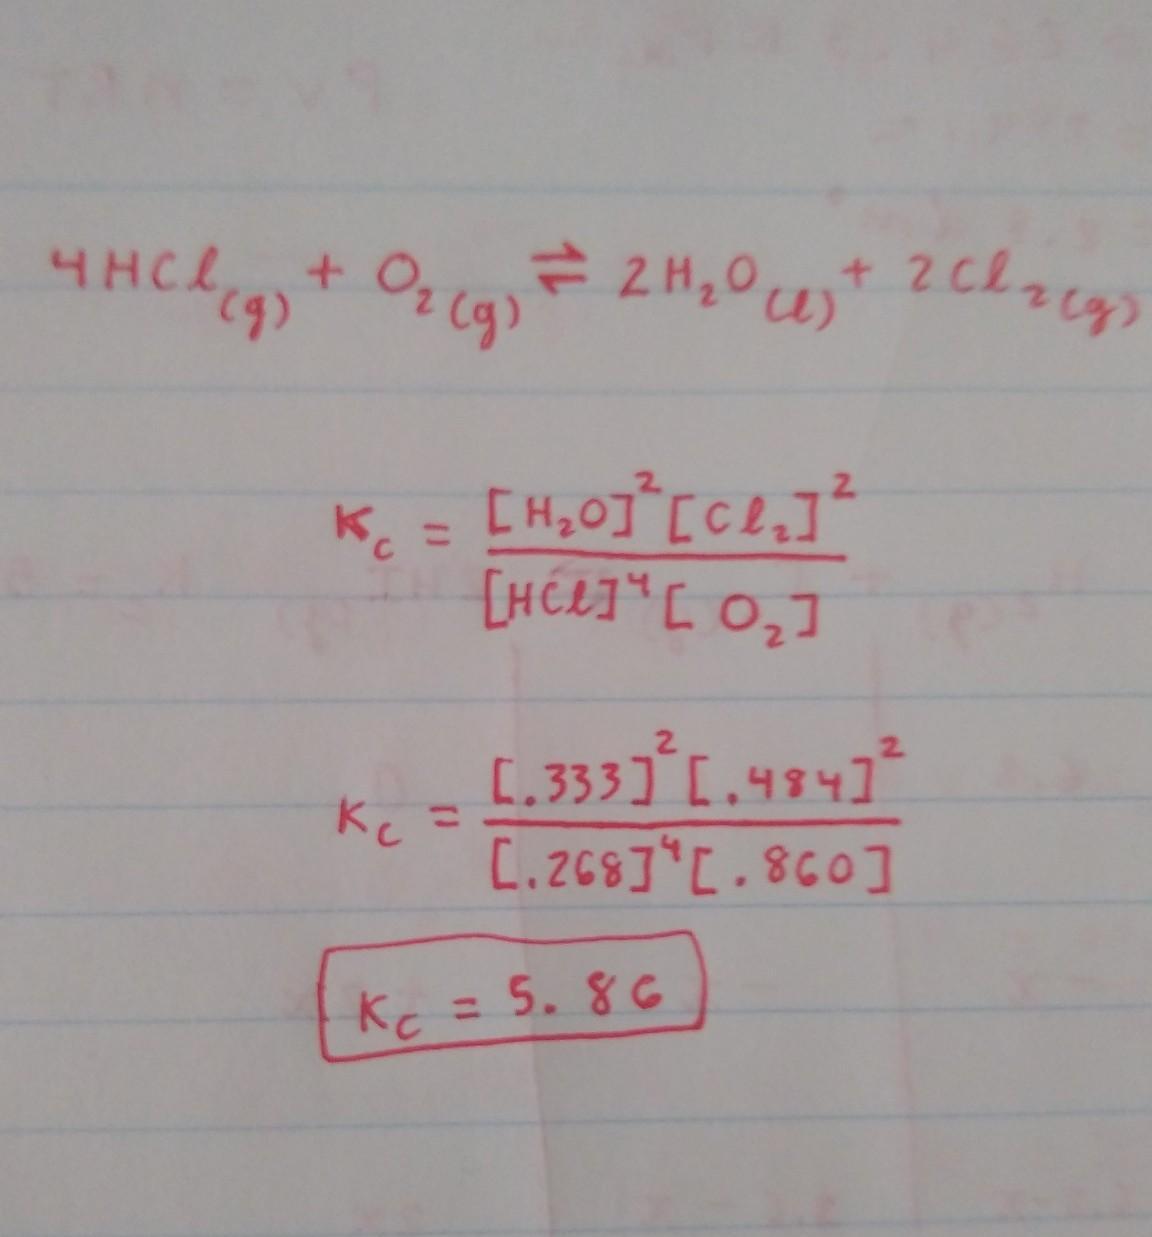 4HCl(g) + O2(g) ⇌ 2H2O(l) + 2Cl2(g)
Kc = [H2O]^2 [Cl2]^2 / [HCl]^4 [O2]
Kc = [.333]^2 [.484]^2 / [.268]^4 [.860]
Kc = 5.86